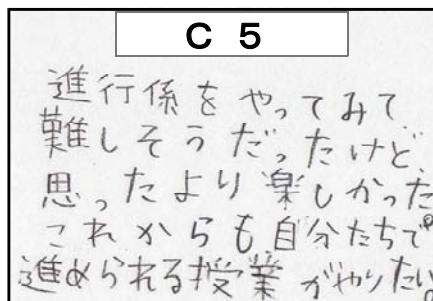 C 5
進行係をやってみて、
難しそうだったけど、
思ったより楽しかった。
これからも自分たちで
進められる授業がやりたい。